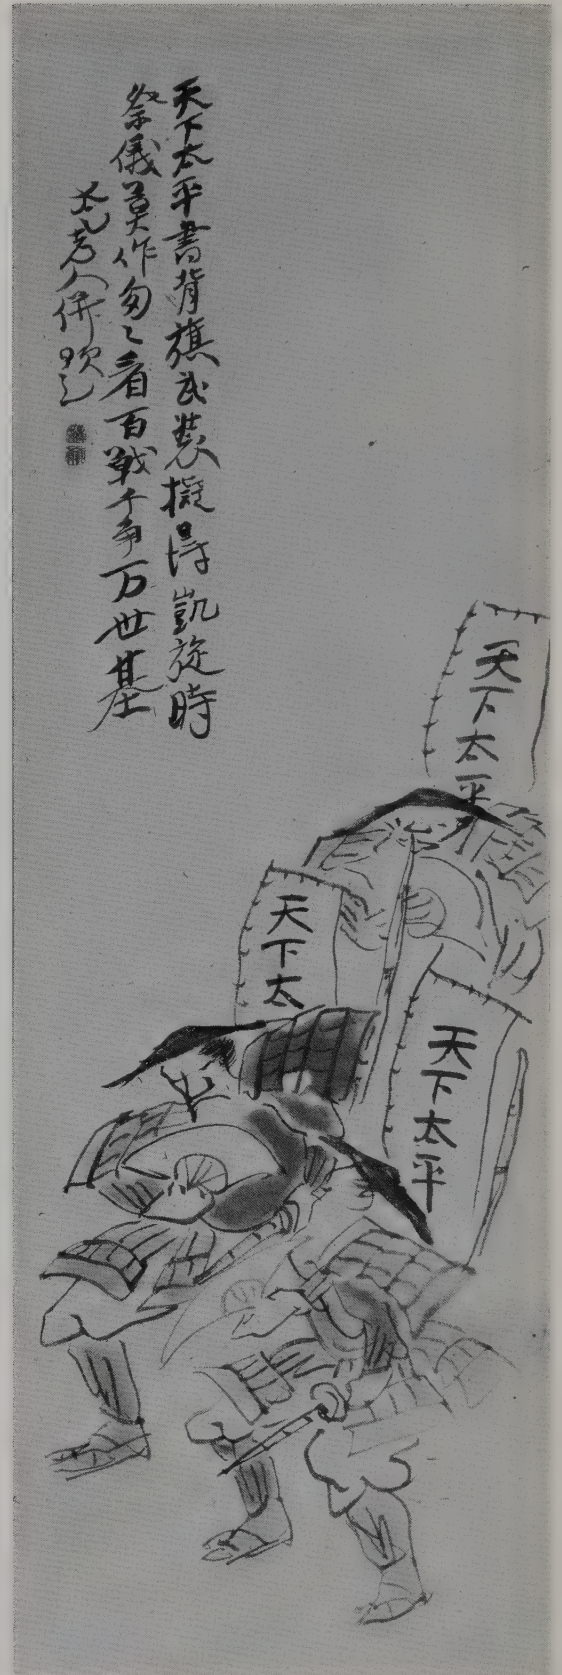 天下太平書背旗武装擬得凱旋時
祭儀莫作匆々看百戦千争万世基
老人併題
天下太平
天下太
天下太平